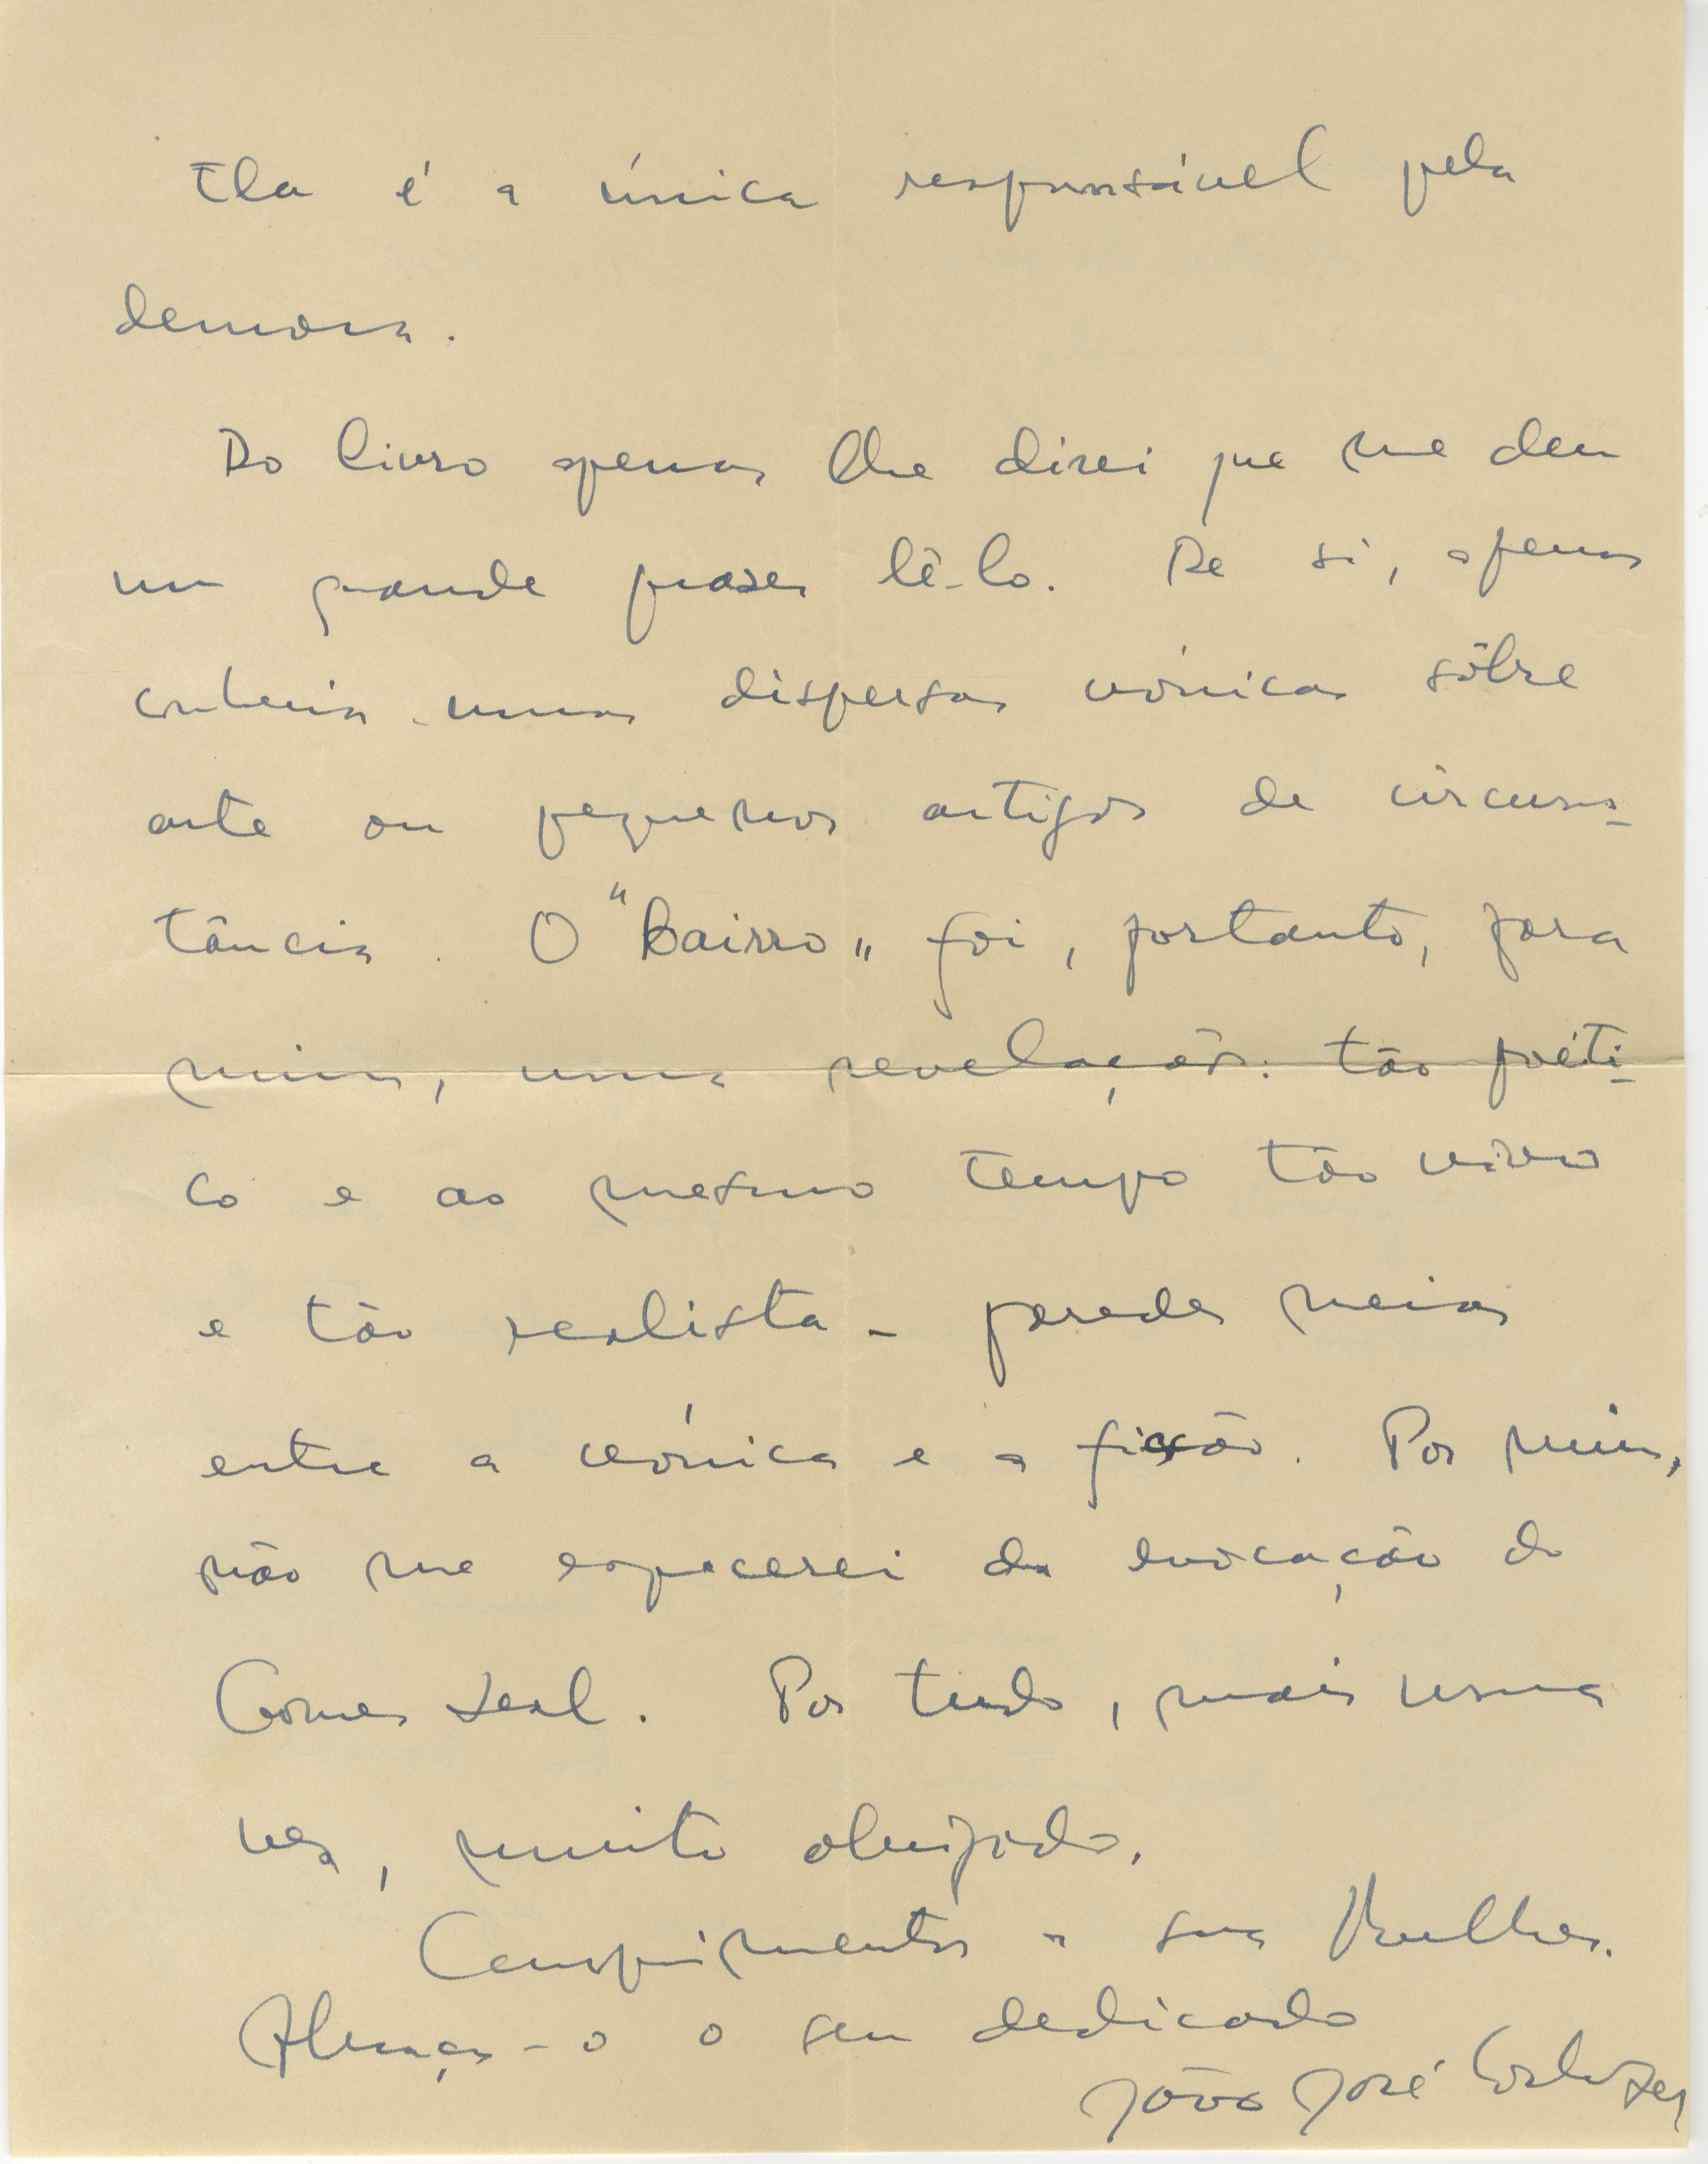 Ela é a única responsável pela
demora.
Do livro apenas lhe direi que me deu
um grande prazer lê-lo. De si, apenas
conhecia umas dispersas crónicas sôbre
arte ou pequenos artigos de circuns-
tância. O "Bairro" foi, portanto, para
mim, uma revelação: tão poéti-
co e ao mesmo tempo tão vivo
e tão realista - paredes meias
entre a crónica e a ficção. Por mim,
não me esquecerei da evocação do
Gomes Leal. Por tudo, mais uma
vez, muito obrigado.
Cumprimentos a sua Mulher.
Abraça-o o seu dedicado
João José Cochofel